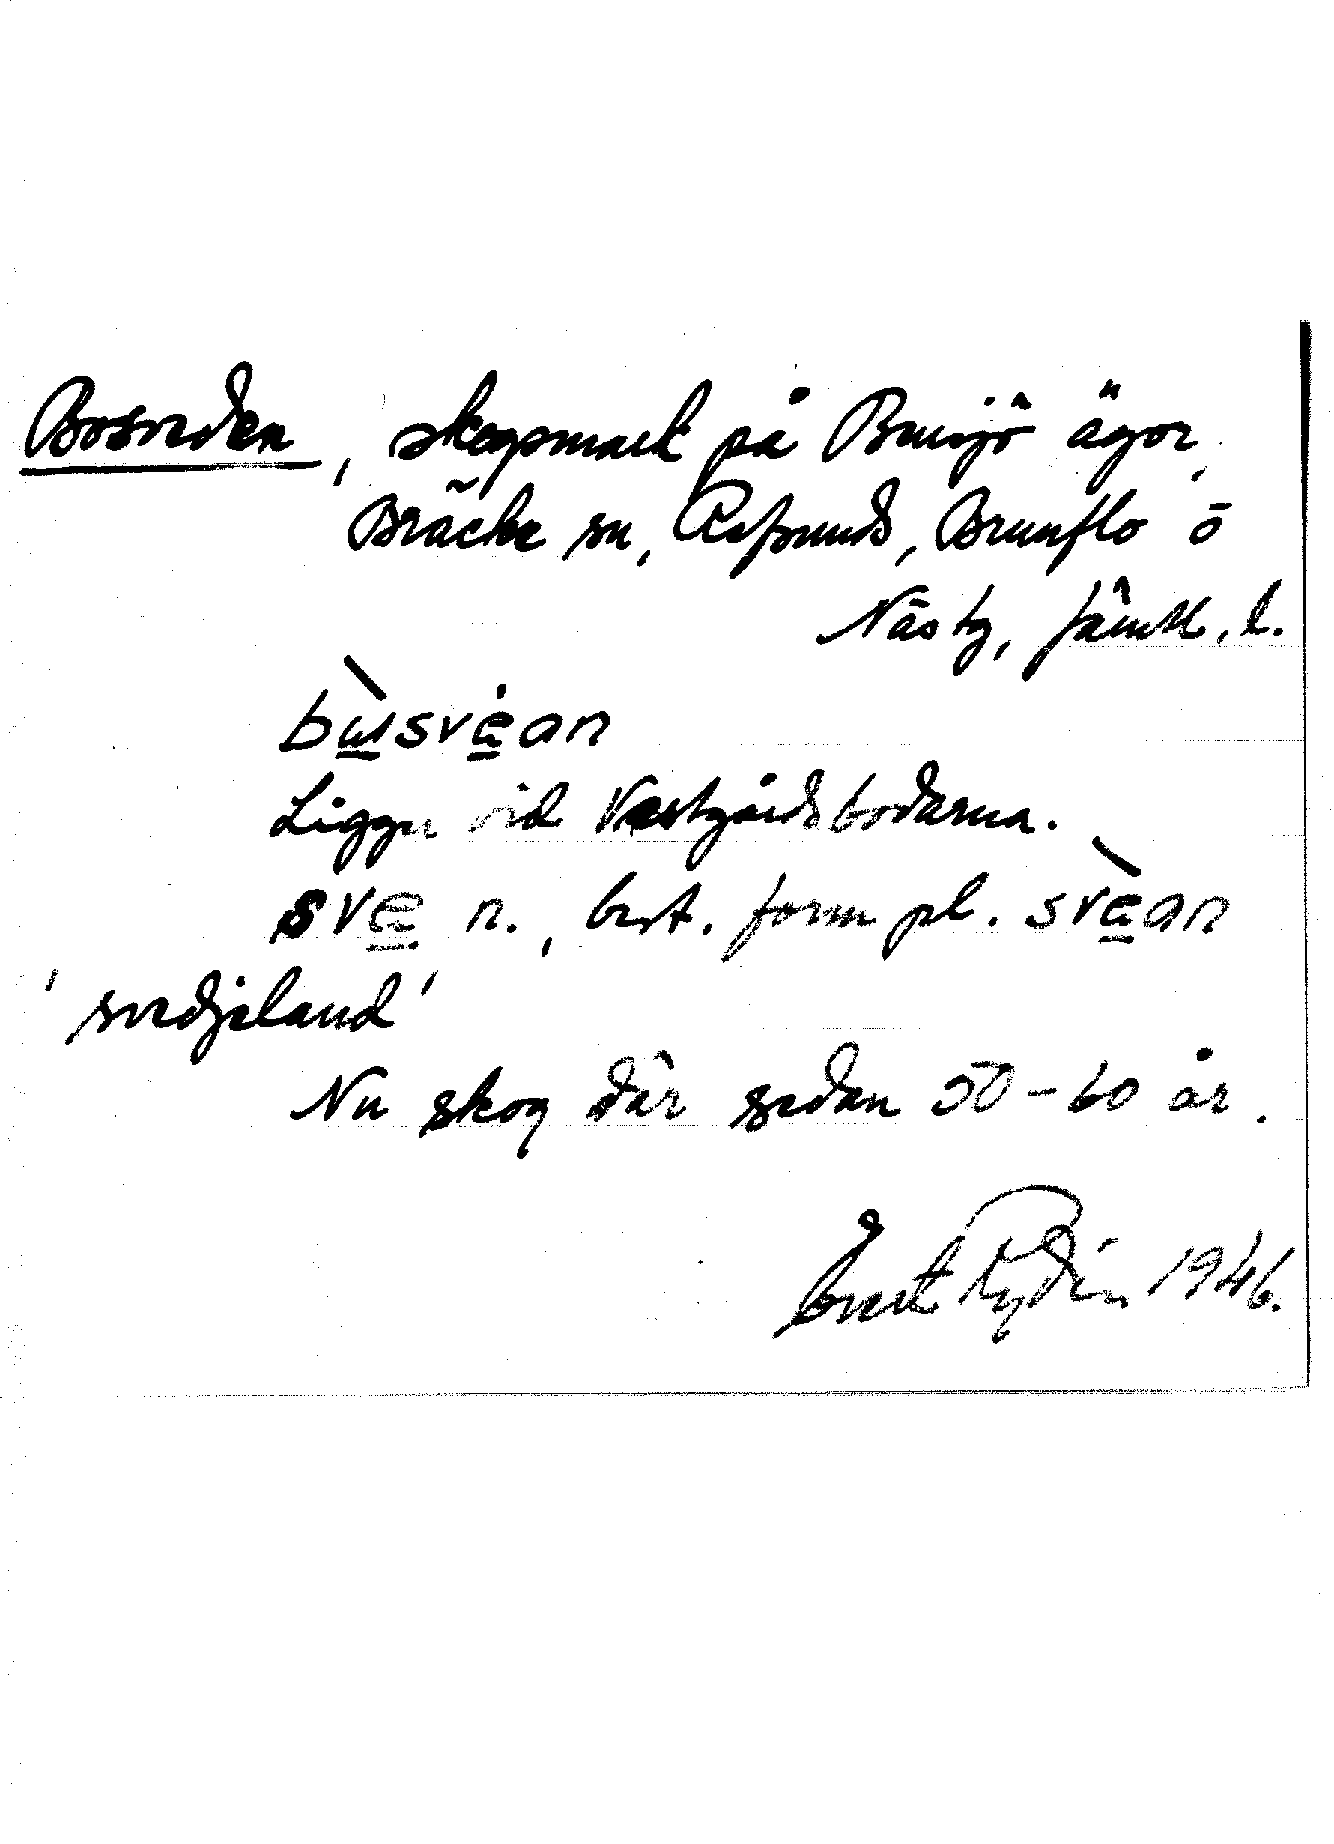 Bosveden, skogsmark på Bensjö ägor,
Bräcke sn, Refsunds, Brunflo o
Näs tg, Jämtl. l.
bu̲sve̲an
Ligger vid Västgårdsbodarna.
sve̲ n., best. form pl. svè̲an
'svedjeland'
Nu skog där sedan 50-60 år.
Evert Rydin 1946.